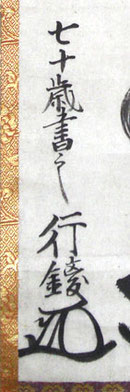 七十歳書之
行